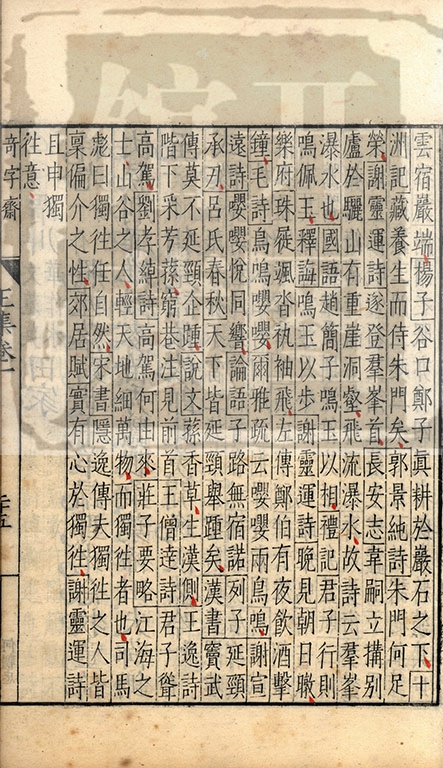 雲宿巖端楊子谷口鄭子真耕於巖石之下十
洲記藏養生而侍朱門矣郭景純詩朱門何足
榮謝靈運詩遂登羣峯首長安志韋嗣立搆別
廬於驪山有重崖洞壑飛流瀑水故詩云羣峯
瀑水也國語趙簡子鳴玉以相禮記君子行則
鳴佩玉釋誨鳴玉以步謝靈運詩晚見朝日暾
樂府珠屣颯沓紈袖飛左傳鄭伯有夜飲酒擊
鐘毛詩鳥鳴嚶嚶爾雅疏云嚶嚶兩鳥鳴謝宣
遠詩嚶嚶悅同響論語子路無宿諾列子延頸
承刃呂氏春秋天下皆延頸舉踵矣漢書竇武
傳莫不延頸企踵說文蓀香草生漢側王逸詩
階下采芳蓀窮巷注見前首王僧達詩君子聳
高駕劉孝綽詩高駕何由來莊子要略江海之
士山谷之人輕天地細萬物而獨徃者也司馬
彪曰獨徃任自然宋書隱逸傳夫獨徃之人皆
稟偏介之性郊居賦實有心於獨徃謝靈運詩
且申獨
徃意
奇字齋
王集卷一
二十五